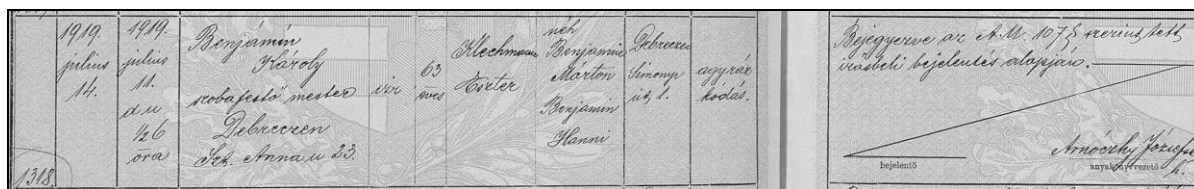 1919.
július
14.
1318.
1919.
július
11.
d u
1/2 6
óra
Benjámin
Károly
szobafestő mester
Debreczen
Szt. Anna u 23.
izr
63
éves
Klechmann
Eszter
néh
Benjamin
Márton
Benjamin
Hanni
Debreczen
Simonyi
út, 1.
agyráz
kódás.
Bejegyezve az A. M. 107 § szerint tett
írásbeli bejelentés alapján.
bejelentő
anyakönyvvezető
h.